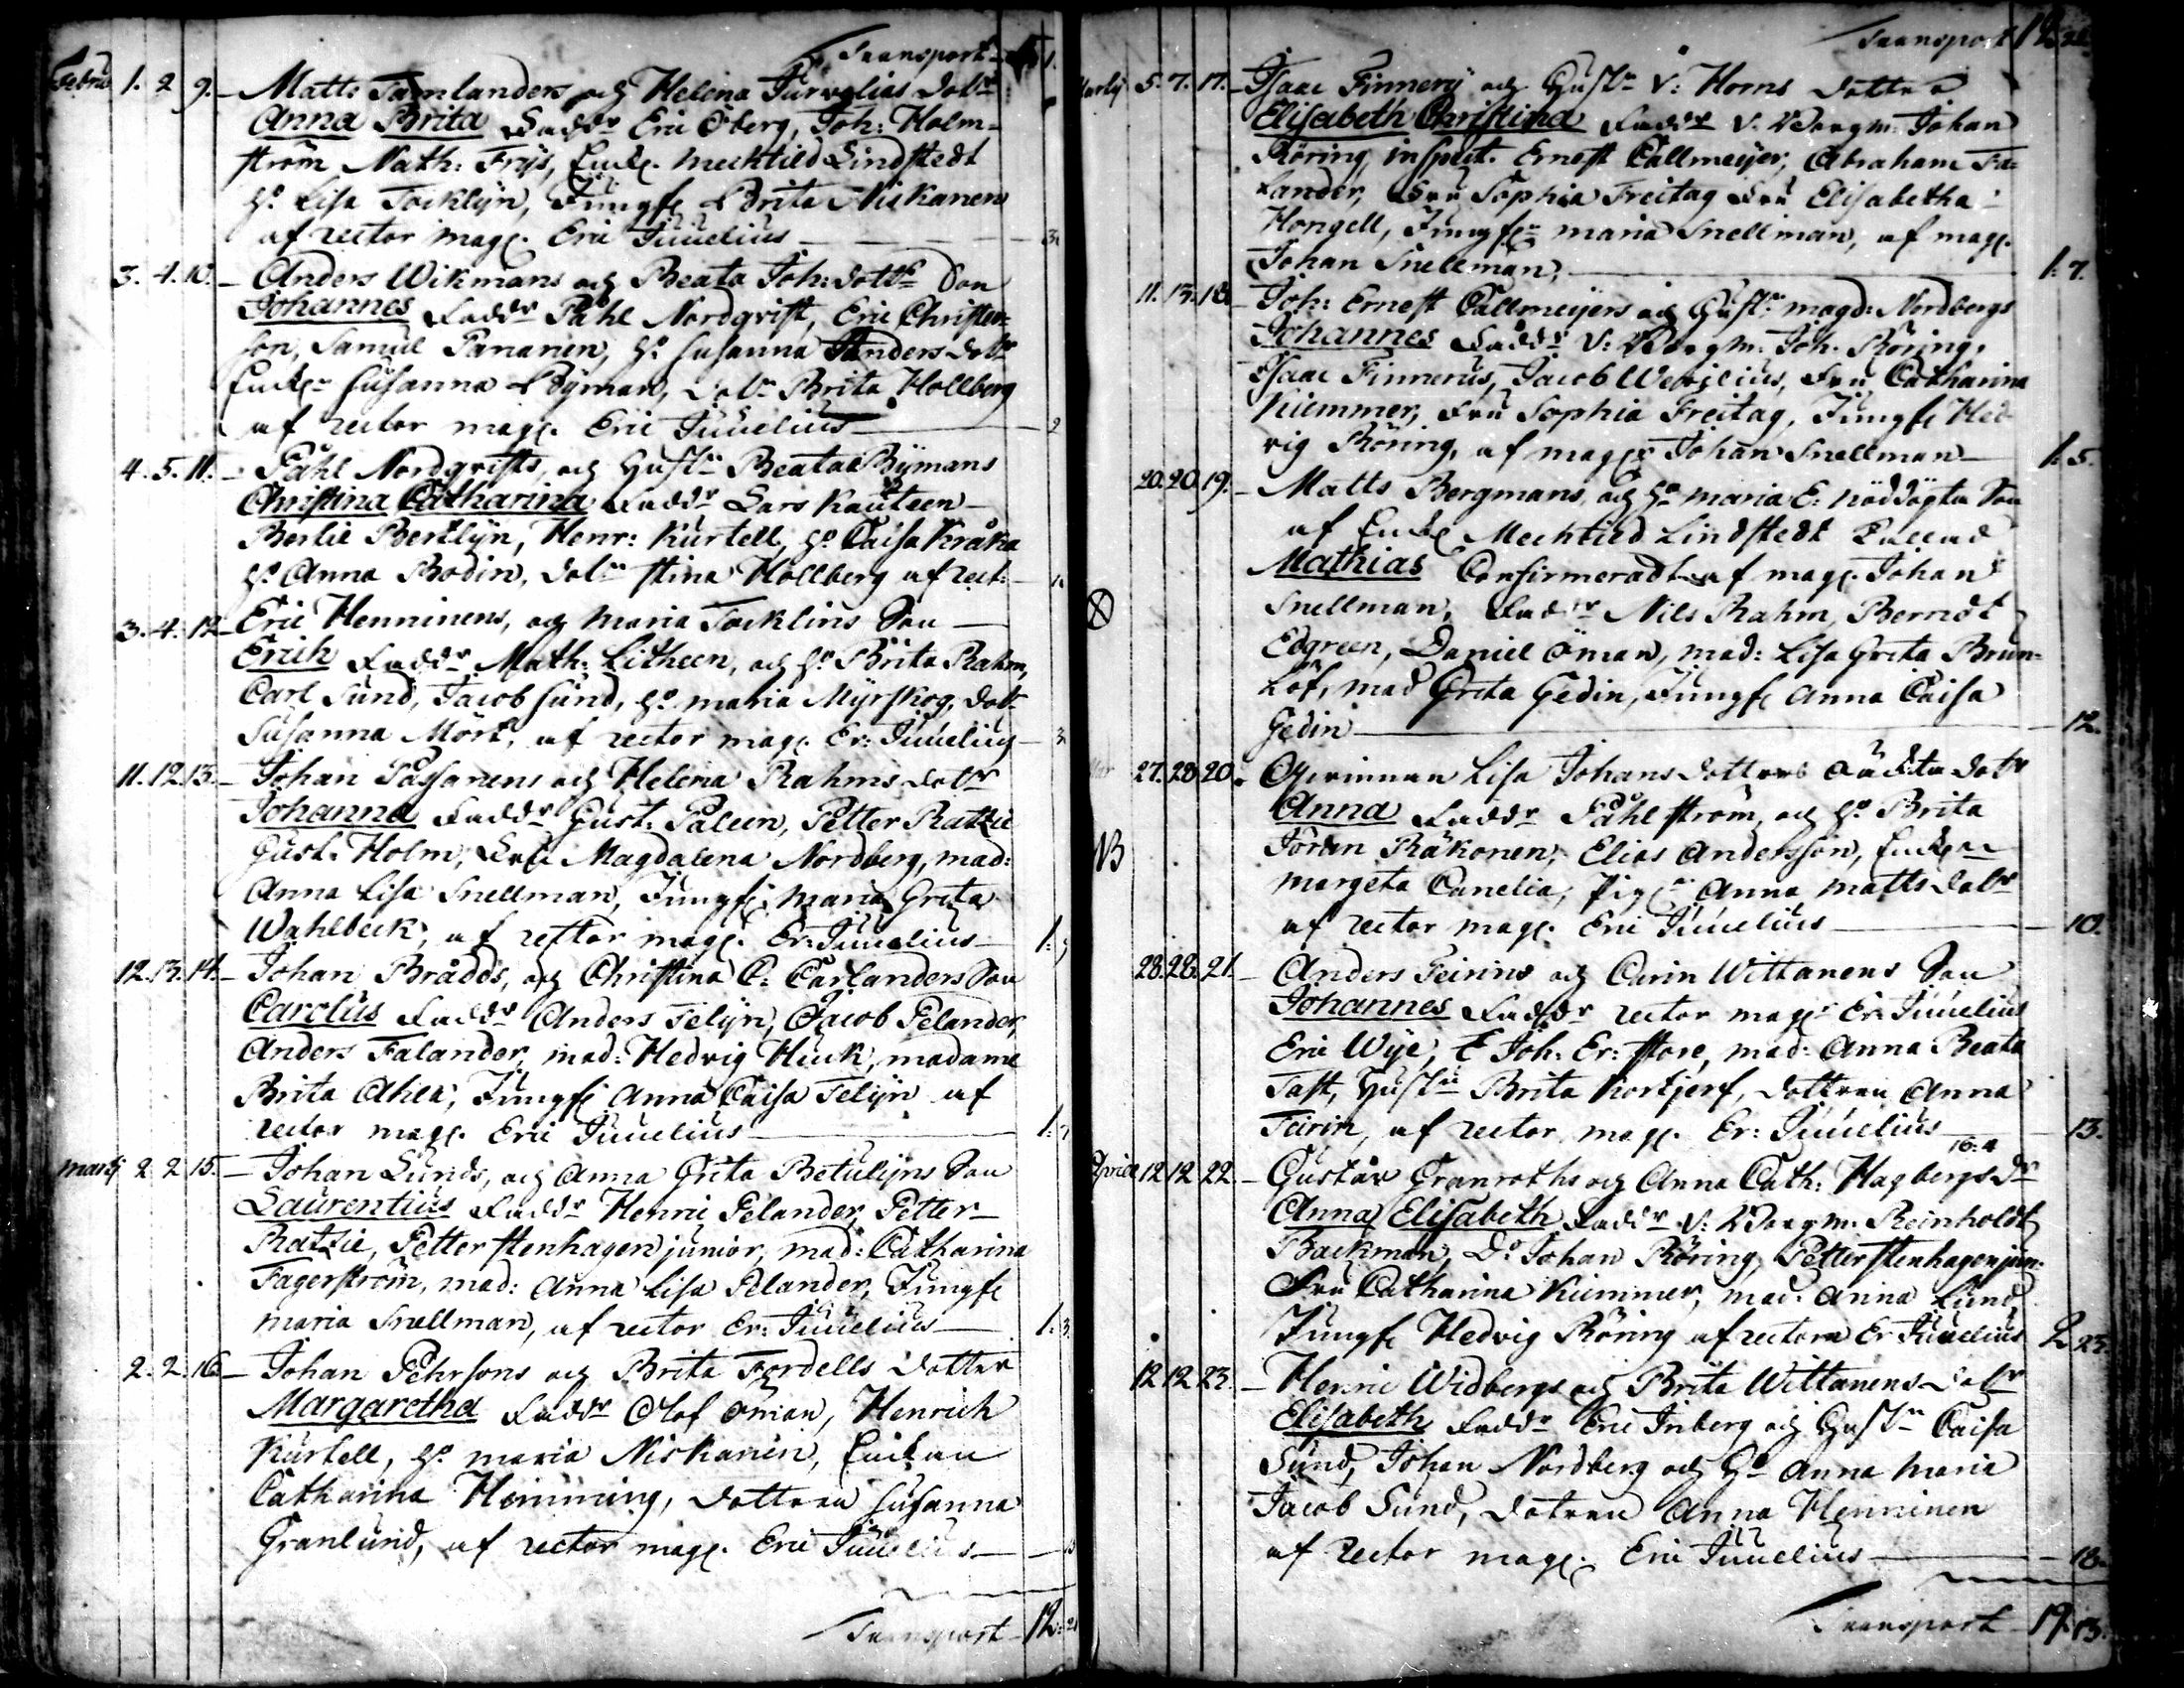 Transport
Febru 1. 2 9. Matts Tamlanders och Helena Turvelias dotr
Anna Brita Faddr Eric Öberg, Joh: Holm-
ström, Nath: Frijs, Enk. Mecktild Lindstedt
H: Lisa Tocklijn, Jungf: Brita Niskanen
af rector mag. Eric Juuelius 3
3. 4. 10. Anders Wikmans och Beata Joh: dottr Son
Johannes Faddr Påhl Nordqvist, Eric Christer-
son, Samuel Pananen, H: Susanna Anders dotr
Enk: Susanna Byman, dotr Brita Hollberg
af rector mag. Eric Juuelius 2
4. 5. 11. Påhl Nordqvists, och Hustr: Beata Bymans
Christina Catharina Faddr Lars Kauteen
Berlie Bertlijn, Henr: Kurtell, H: Caisa Kråka
H: Anna Bodin, dotr Stina Hollberg af rect:
3. 4. 12 Eric Henninens, och Maria Tocklins Son
Erich Faddr Math: Litheen, och H: Brita Rahm,
Carl Sund, Jacob Sund, H: Maria Myrskog, dotr
Susanna Mört, af rector mag. Er: Juuelius 3
11. 12. 13. Johan Passanens och Helena Rahms dotr
Johanna Faddr Gust: Paleen, Petter Ratzie
Gust: Holm, Fru Magdalena Nordberg, mad:
Anna Lisa Snellman, Jungf: Maria Greta
Wahlbeck, af rector mag. Er: Juuelius 1:
12. 13. 14. Johan Brådds, och Christina C: Carlanders Son
Carolus Faddr Anders Telijn, Jacob Pelander,
Anders Falander, mad: Hedvig Huck, madame
Brita Ahla, Jungf: Anna Caisa Telijn af
rector mag. Eric Juuelius 1:
Martij 2. 2 15. Johan Lunds, och Anna Greta Betulijns Son
Laurentius Faddr Henric Pelander, Petter
Ratzie, Petter Stenhagen junior, mad: Catharina
Fagerström, mad: Anna Lisa Pelander, Jungf:
Maria Snellman, af rector Er: Juuelius 1: 3
2. 2. 16. Johan Pehrsons och Brita Fordells dotter
Margaretha Faddr Olof Öman, Henrich
Kurtell, H: Maria Niskanen, Enkan
Catharina Hemming, dottren Susanna
Granlund, af rector mag. Eric Juuelius
Transport 12: 21
Transport 12 21
Martij 5. 7. 17. Isaac Finnerij och Hustr: v: Horns dotter
Elisabeth Christina Faddr v. Borgm. Johan
Röring, inspect. Ernest Callmeijer, Abraham Fa-
lander, Fru Sophia Freitag Fru Elisabetha
Hongell, Jungf: Maria Snellman, af mag.
Johan Snellman 1: 7.
11. 13. 18 Joh: Ernest Callmeijers och Hustr: Magd: Nordbergs
Johannes Faddr v: Borgm. Joh. Röring,
Isaac Finnerus, Jacob Wexilius, Fru Catharina
Kiemmer, Fru Sophia Freitag, Jungf: Hed
vig Röring, af mag. Johan Snellman 1: 5.
20. 20. 19. Matts Bergmans, och H: Maria E: nöddöpta Son
af Enk: Mechtild Lindstedt
Mathias Confirmeradt af mag. Johan
Snellman, Faddr Nils Rahm, Berndt
Edgreen, Daniel Öman, mad: Lisa Greta Brun-
löf, mad Greta Gedin, Jungf: Anna Caisa
Gedin 12.
27. 28 20. Qvinnan Lisa Johans dotters oäkta dotr
Anna Faddr Påhl ström, och H: Brita
NB Jören Räkonen, Elias Andersson, Enkan
Margeta Canelia, Pig: Anna Matts dotr
af rector mag. Eric Juuelius 10.
28. 28. 21. Anders Teirins och Carin Wittanens Son
Johannes Faddr rector mag. Er: Juuelius
Eric Wije, Joh: Er: Store, mad: Anna Beata
Tast, Hustr: Brita Kortjerf, dottren Anna
Teirin, af rector mag. Er: Juuelius 13.
16: 4
Aprill 12 12 22. Gustav Granroths och Anna Cath: Hagbergs dr
Anna Elisabeth Faddr v: Borgm: Reinholdt
Backman, Do Johan Röring, Petter Stenhagen jun:
Fru Catharina Kiemmer, mad. Anna Lund,
Jungf: Hedvig Röring af rectorn Er Juuelius 2 23
12 12 23. Henric Widbergs och Brita Wittanens dotr
Elisabeth Faddr Eric Inberg och Hustr: Caisa
Sund, Johan Nordberg och H: Anna Maria
Jacob Sund, dotren Anna Henninen
af rector mag. Eric Juuelius 18.
Transport 19: 13.